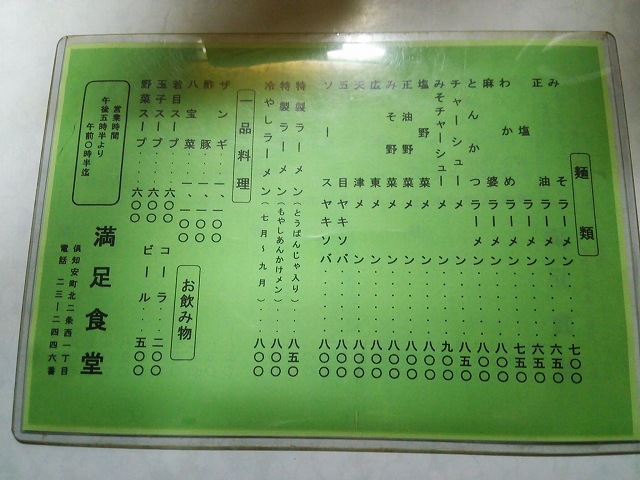 麺類
みそラーメン・・・・・七〇〇
正油ラーメン・・・・・六五〇
塩ラーメン・・・・・六五〇
わかめラーメン・・・・・七五〇
麻婆ラーメン・・・・・八〇〇
とんかつラーメン・・・・・八〇〇
チャーシューメン・・・・・八五〇
みそチャーシューメン・・・・・九〇〇
塩野菜メン・・・・・八〇〇
正油野菜メン・・・・・八〇〇
みそ野菜メン・・・・・八〇〇
広東メン・・・・・八〇〇
天津メン・・・・・八〇〇
五目ヤキソバ・・・・・八〇〇
ソースヤキソバ・・・・・八〇〇
特製ラーメン（とうばんじゃ入り）・・・八五〇
特製ラーメン（もやしあんかけメン）・・八〇〇
冷やしラーメン（七月〜九月）・・・八〇〇
一品料理
ザンギ
酢豚・・一、一〇〇
八宝菜・・一、一〇〇
若目スープ・・六〇〇
玉子スープ・・六〇〇
野菜スープ・・六〇〇
お飲み物
コーラ・・二〇〇
ビール・・五〇〇
営業時間
午後五時半より
午前〇時半迄
満足食堂
倶知安町北二条西一丁目
電話 二三ー二四四六番